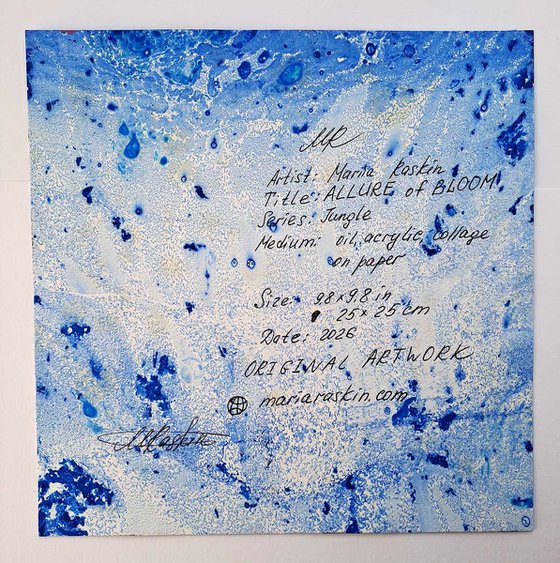 MR
Artist: Maria Raskin
Title: ALLURE of BLOOM
Series: Jungle
Medium: oil, acrylic, collage
on paper
Size: 9.8 x 9.8 in
25 x 25 cm
Date: 2026
ORIGINAL ARTWORK
mariaraskin.com
MRaskin